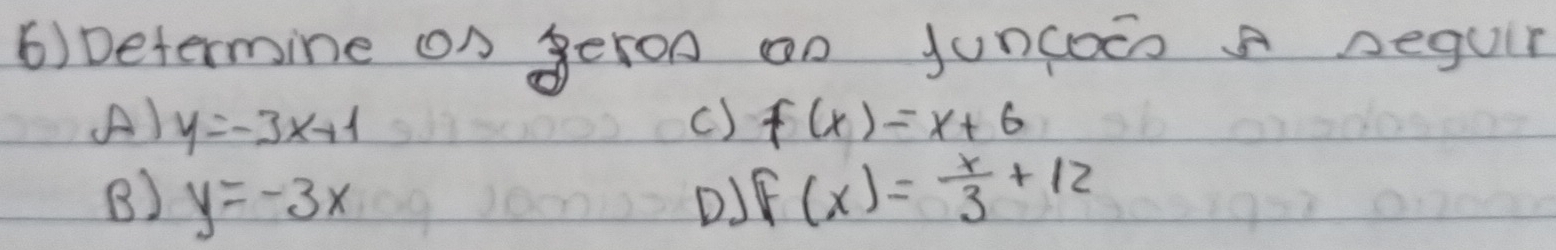 6) Determine os zeros as funções A seguir
A) y=-3x+1 C) f(x)=x+6
B) y=-3x D) F(x)=x/3+12